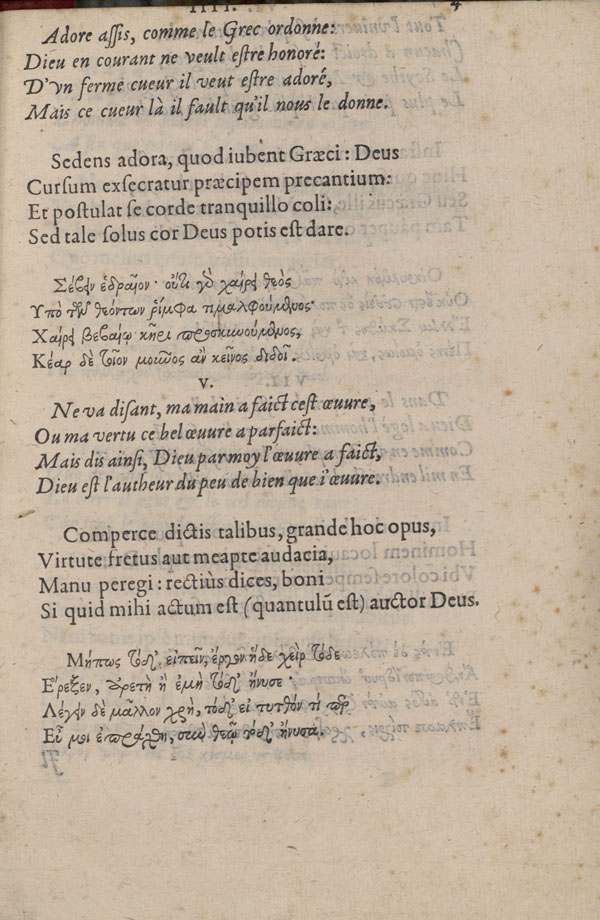 IIII. 4
Adore assis, comme le Grec ordonne:
Dieu en courant ne veult estre honoré:
D'vn ferme cueur il veut estre adoré,
Mais ce cueur là il fault qu'il nous le donne.
Sedens adora, quod iubent Græci: Deus
Cursum exsecratur præcipem precantium:
Et postulat se corde tranquillo coli:
Sed tale solus cor Deus potis est dare.
Σέβειν ἑδραῖον· οὔτι γὸ χαίρει θεὸς
Υπὸ τῶν θεόντων ῥίμφα τιμαλφούμενος·
Χαίρει βεβαίῳ κῆρι προσκυνούμενος,
Κέαρ δὲ τοῖον μοῦνος ἂν κεῖνος διδοῖ.
V.
Ne va disant, ma main a faict cest œuure,
Ou ma vertu ce bel œuure a parfaict:
Mais dis ainsi, Dieu par moy l'œuure a faict,
Dieu est l'autheur du peu de bien que i'œuure.
Comperce dictis talibus, grande hoc opus,
Virtute fretus aut meapte audacia,
Manu peregi: rectiùs dices, boni
Si quid mihi actum est (quantulũ est) auctor Deus.
Μήπως τόδ' εἰπεῖν, ἔργον ἥδε χεὶρ τόδε
Ερεξεν, ἀρετὴ ἢ ἐμὴ τόδ' ἤνυσε·
Λέγειν δὲ μᾶλλον χρὴ, τόδ' εἰ τυτθόν τί περ
Εὖ μοι ἐπράχθη, σὺν θεῷ τόδ' ἤνυσα.